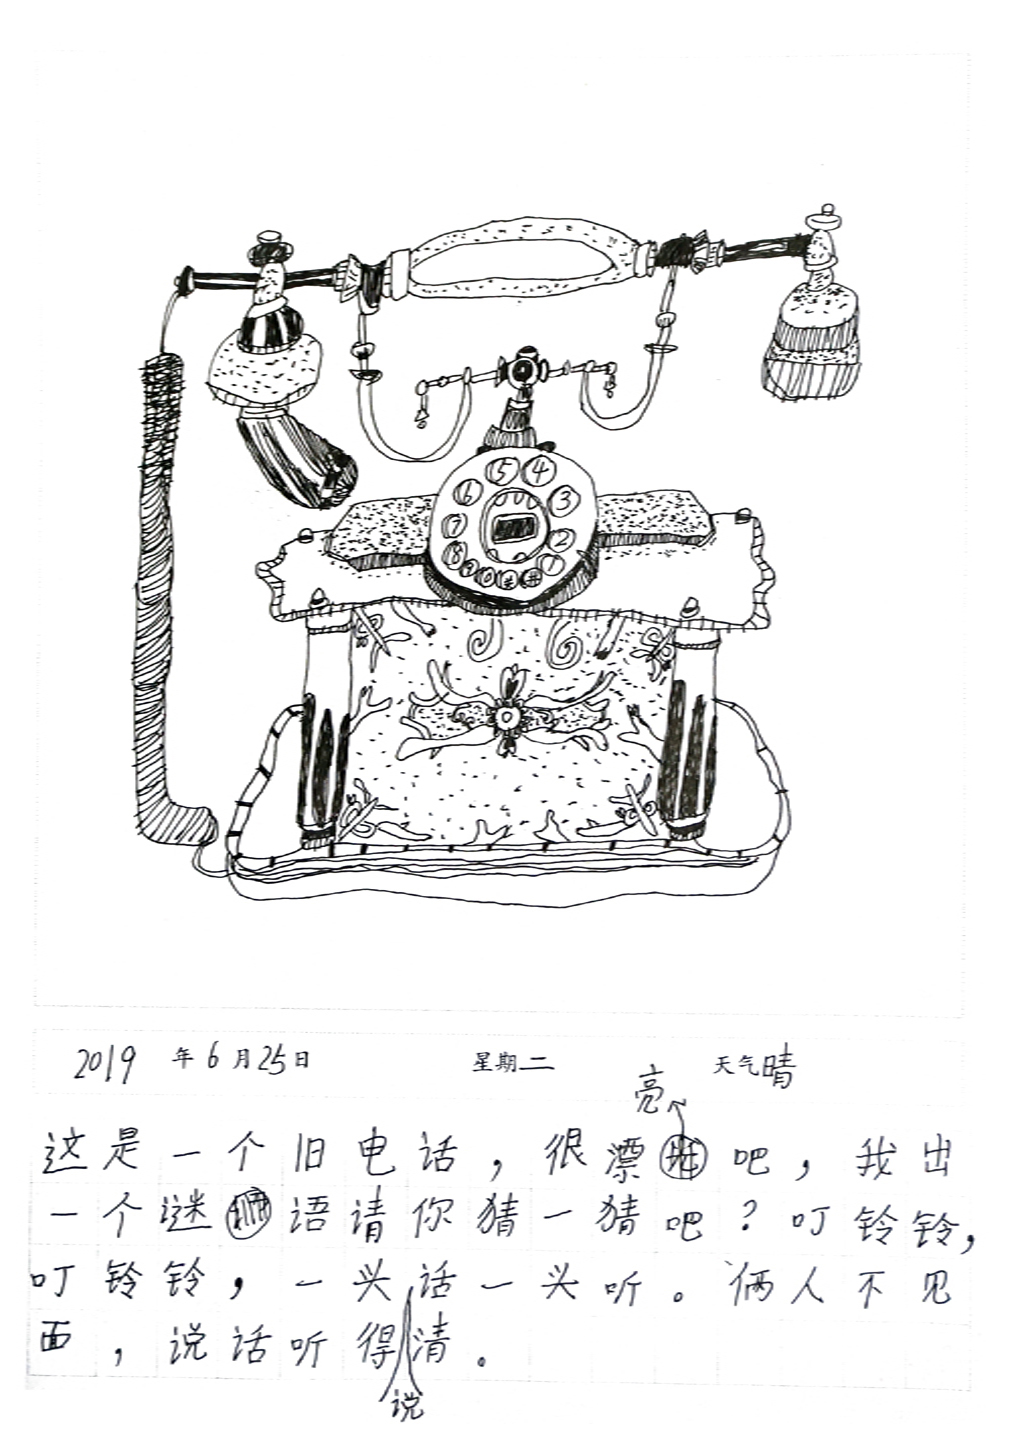 5 4
6 3
7 2
8 9 0 * # 1
2019 年 6 月 25 日 星期二 天气晴
亮
这是一个旧电话，很漂吧，我出
一个谜语请你猜一猜吧？叮铃铃，
叮铃铃，一头话一头听。俩人不见
面，说话听得清。
说